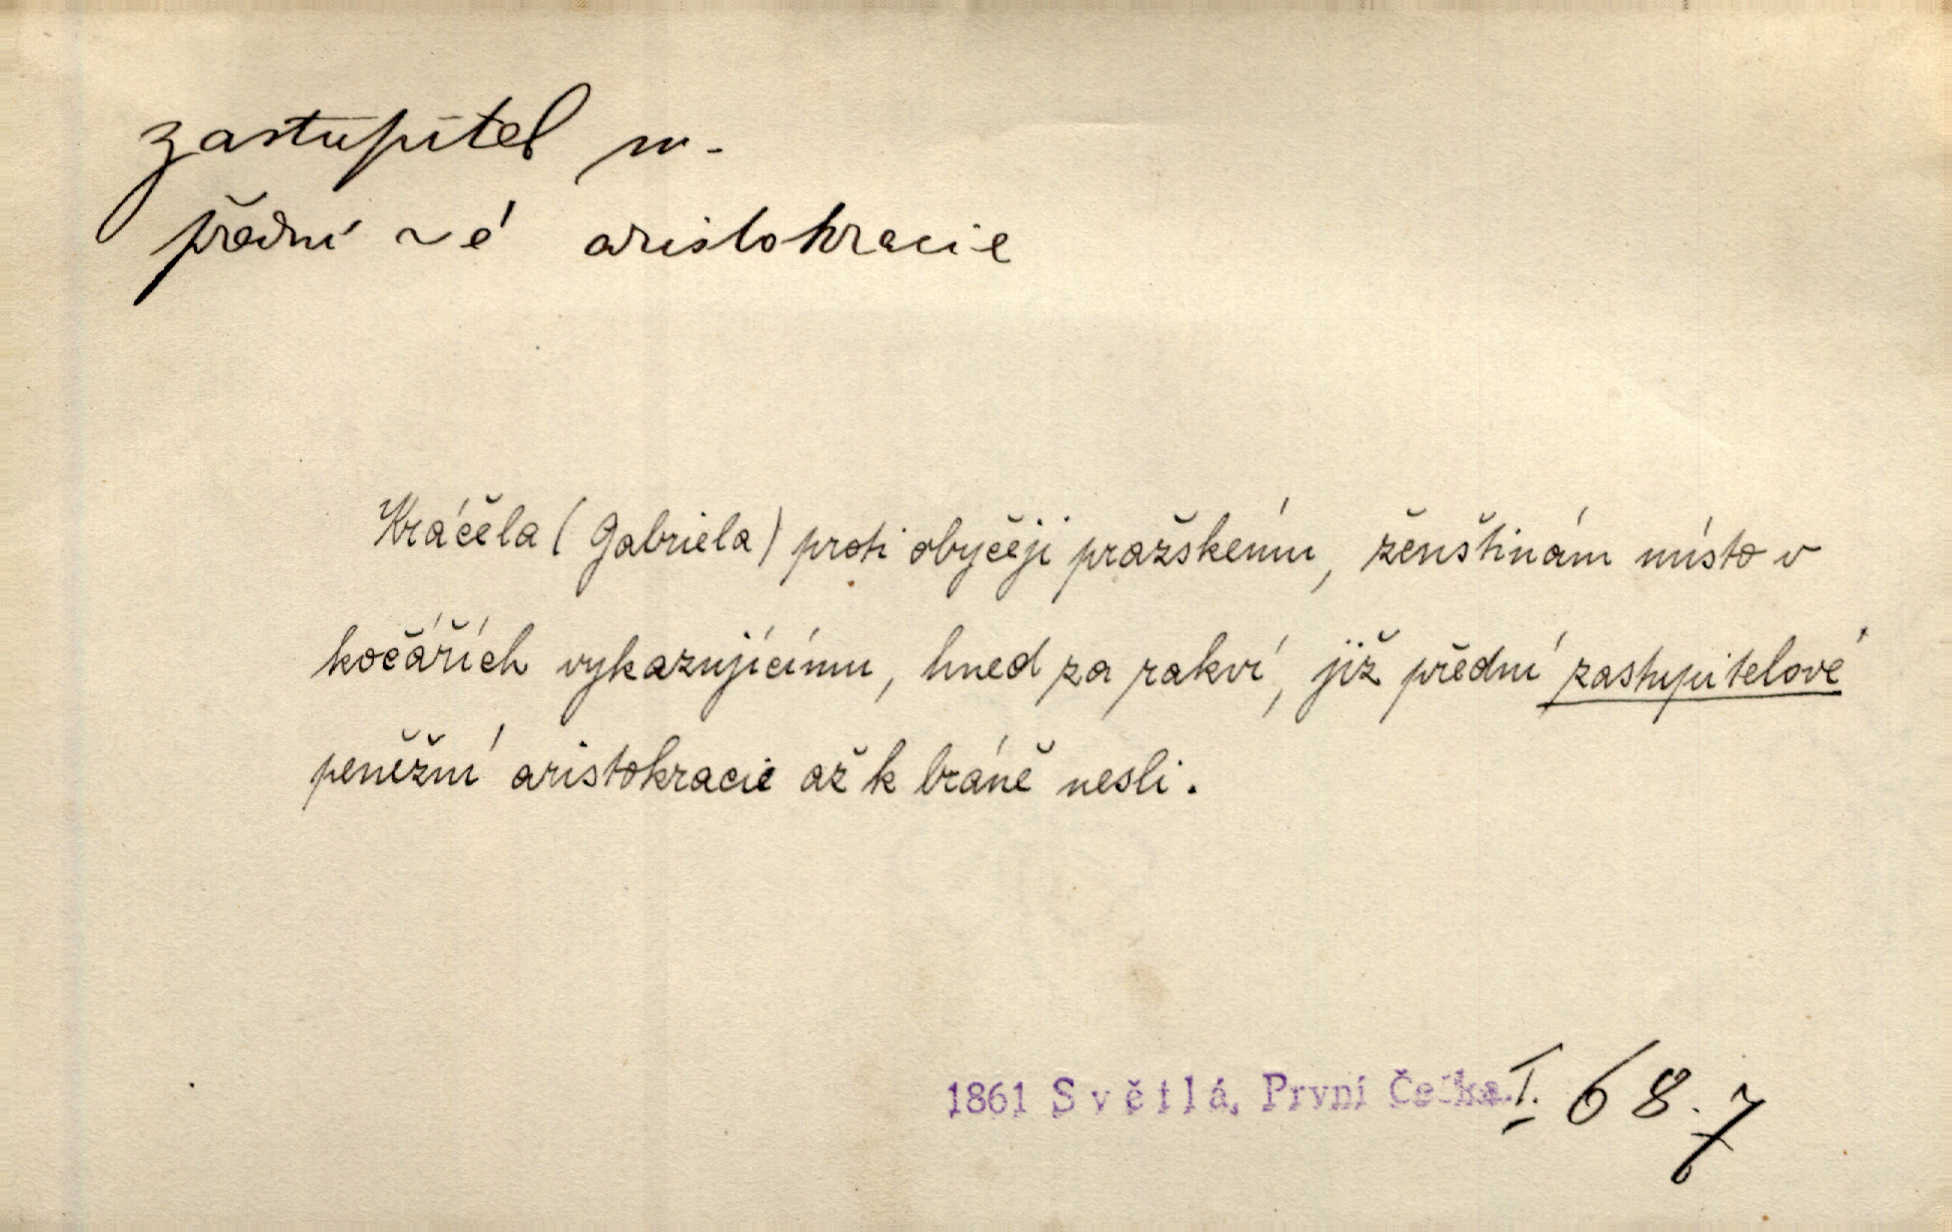 zastupitel m.
přední ~é aristokracie
Kráčela (Gabriela) proti obyčeji pražskému, ženštinám místo v
kočářích vykazujícímu, hned za rakví, již přední zastupitelové
peněžní aristokracie až k bráně nesli.
1861 Světlá, První Češka. I. 68.7